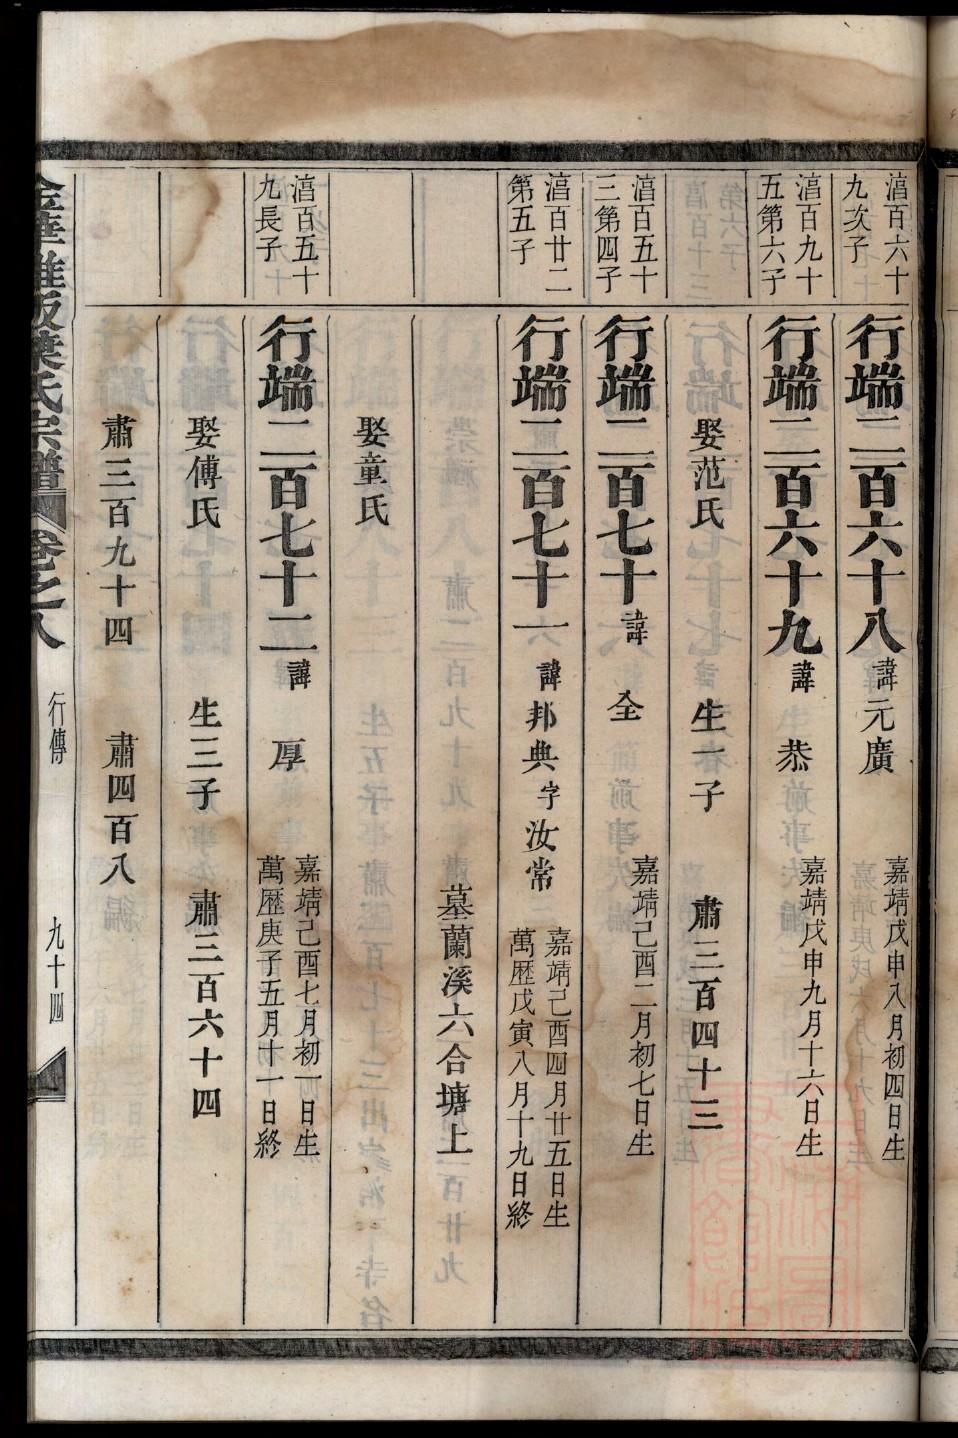 湻百六十
九次子
行端二百六十八諱元廣
嘉靖戊申八月初四日生
湻百九十
五第六子
行端二百六十九諱恭
嘉靖戊申九月十六日生
娶范氏 生一子 肅三百四十三
湻百五十
三第四子
行端二百七十諱全
嘉靖己酉二月初七日生
湻百廿二
第五子
行端二百七十一諱邦典字汝常
嘉靖己酉四月廿五日生
萬歷戊寅八月十九日終
墓蘭溪六合塘上
娶童氏
湻百五十
九長子
行端二百七十二諱厚
嘉靖己酉七月初一日生
萬歷庚子五月十一日終
娶傅氏 生三子 肅三百六十四
肅三百九十四 肅四百八
葉氏宗譜 卷之八 行傳 九十四